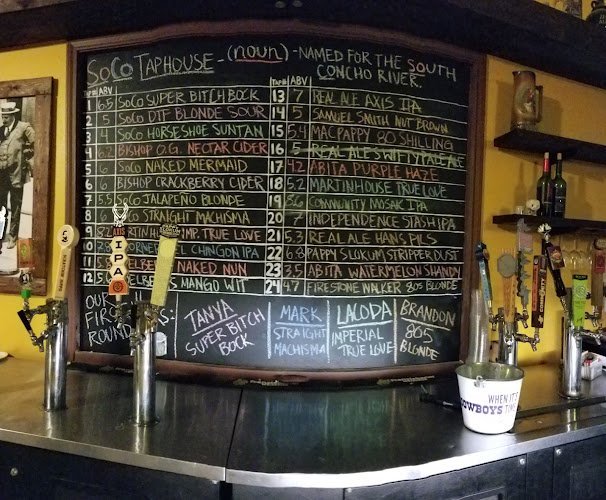 SoCo TAPHOUSE - (noun) - NAMED FOR THE SOUTH
CONCHO RIVER.
TAP# ABV
1 6.5 SoCo SUPER BITCH BOCK
2 5 SoCo DTF BLONDE SOUR
3 4 SoCo HORSESHOE SUNTAN
4 6.2 BISHOP O.G. NECTAR CIDER
5 6 SoCo NAKED MERMAID
6 6 BISHOP CRACKBERRY CIDER
7 5.5 SoCo JALAPEÑO BLONDE
8 6 SoCo STRAIGHT MACHISMA
9 IMP. TRUE LOVE
10 CHINGON IPA
11 NAKED NUN
12 5 MANGO WIT
TAP# ABV
13 7 REAL ALE AXIS IPA
14 5 SAMUEL SMITH NUT BROWN
15 5.4 MACPAPPY 80 SHILLING
16 5 REAL ALES WITTY PALE ALE
17 4.2 ABITA PURPLE HAZE
18 5.2 MARTINHOUSE TRUE LOVE
19 8.6 COMMUNITY MOSAIC IPA
20 7 INDEPENDENCE STASH IPA
21 5.3 REAL ALE HANS PILS
22 6.8 PAPPY SLOKUM STRIPPER DUST
23 3.5 ABITA WATERMELON SHANDY
24 4.7 FIRESTONE WALKER 805 BLONDE
OUR
FIRS
ROUND
TANYA
SUPER BITCH
BOCK
MARK
STRAIGHT
MACHISMA
LACODA
IMPERIAL
TRUE LOVE
BRANDON
805
BLONDE
AXIS
IPA
WHEN IT'S
COWBOYS TIME